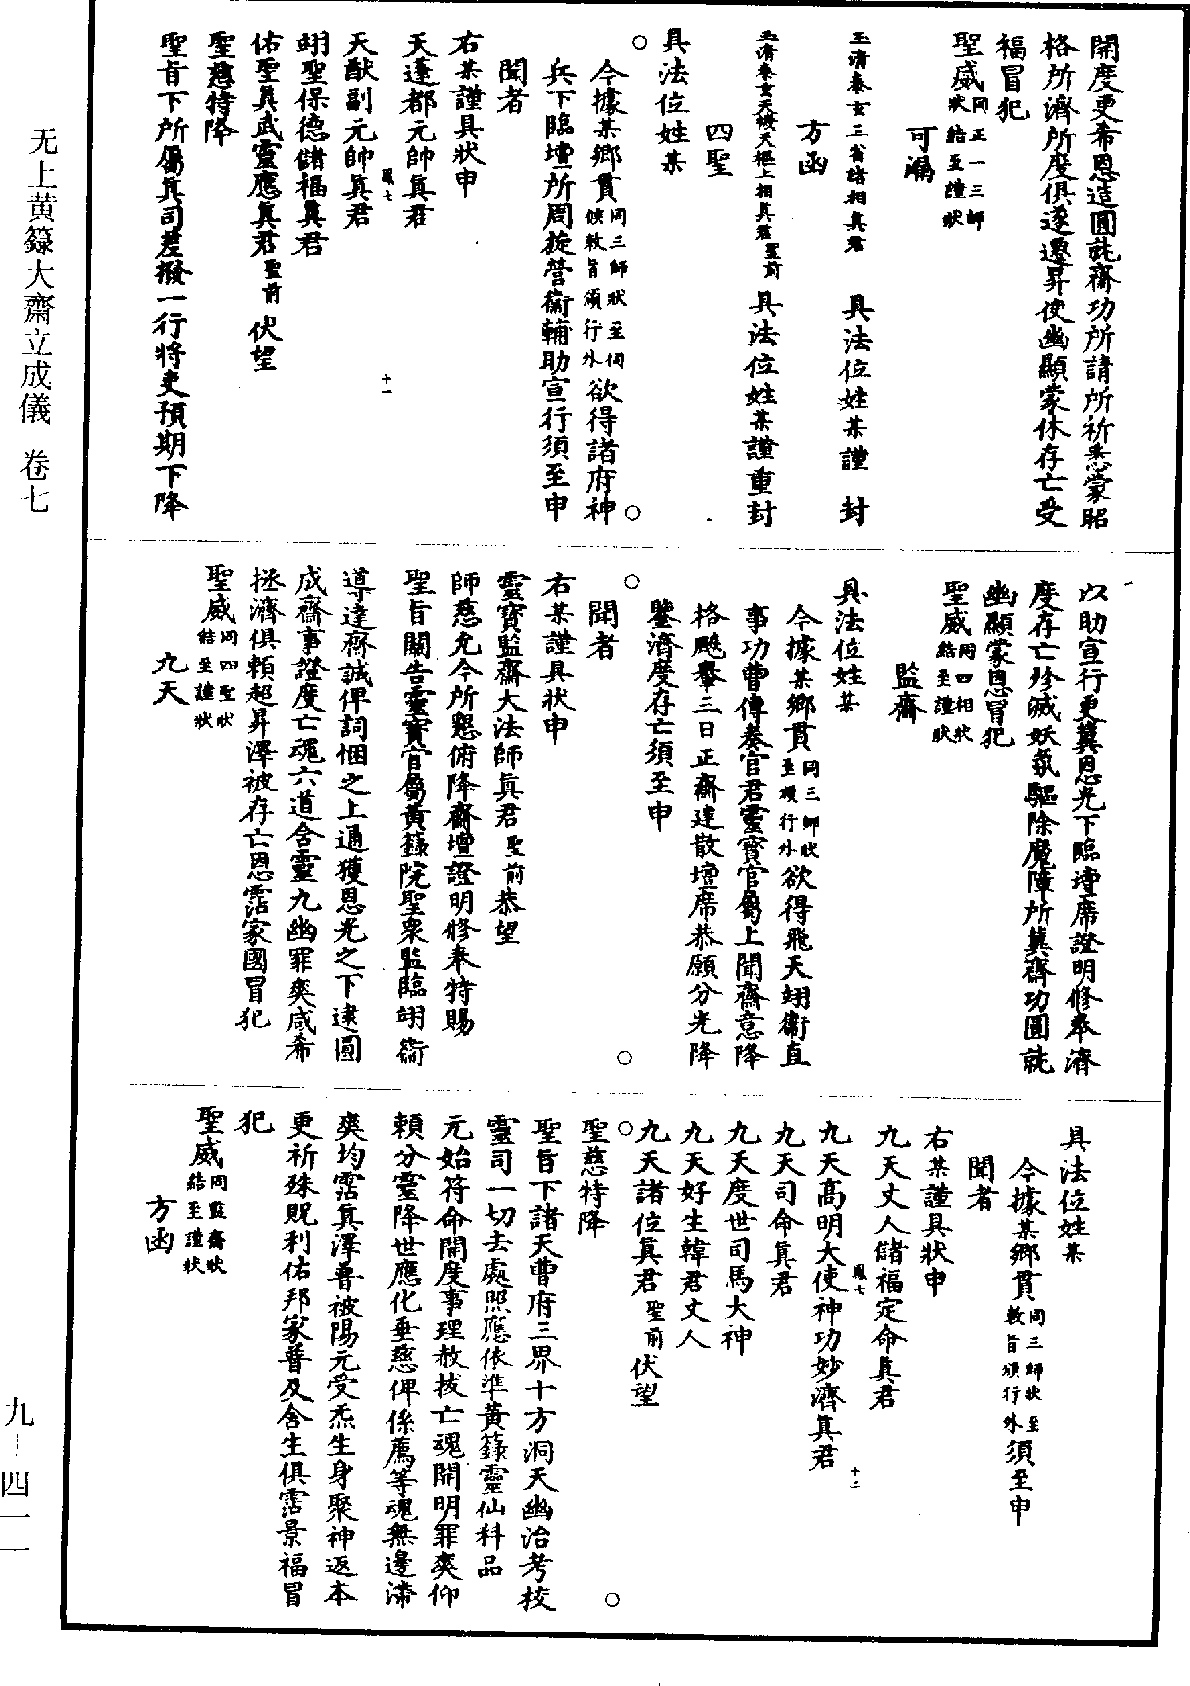 開度更希恩造圓就齋功所請所祈悉蒙昭
格所濟所度俱遂遷昇使幽顯蒙休存亡受
福冒犯
聖威同正一三師狀結至謹狀
可漏
玉清奏玄三省諸相真君　具法位姓某謹　封
方函
玉清奏玄天機天樞上相真君聖前　具法位姓某謹重封
四聖
具法位姓某
今據某鄉貫同三師狀至伺候敕旨頒行外欲得諸府神
兵下臨壇所周旋營衞輔助宣行須至申
聞者
右某謹具狀申
天蓬都元帥真君
天猷副元帥真君
翊聖保德儲福真君
佑聖真武靈應真君聖前　伏望
聖慈特降
聖旨下所屬真司差撥一行將吏預期下降
以助宣行更冀恩光下臨壇席證明修奉濟
度存亡殄滅妖氛驅除魔障所冀齋功圓就
幽顯蒙恩冒犯
聖威同四相狀結至謹狀
監齋
具法位姓某
今據某鄉貫同三師狀至頒行外欲得飛天翊衞直
事功曹傳奏官君靈寳官屬上聞齋意降
格飇轝三日正齋建散壇席恭願分光降
鑒濟度存亡須至申
聞者
右某謹具狀申
靈寳監齋大法師真君聖前恭望
師慈允今所懇俯降齋壇證明修奉特賜
聖旨關告靈寳官屬黃籙院聖衆監臨翊衞
導達齋誠俾詞悃之上通獲恩光之下逮圓
成齋事證度亡魂六道含靈九幽罪爽咸希
拯濟俱賴超昇澤被存亡恩霑家國冒犯
聖威同四聖狀結至謹狀
九天
具法位姓某
今據某鄉貫同三師狀至敕旨頒行外須至申
聞者
右某謹具狀申
九天丈人儲福定命真君
九天高明大使神功妙濟真君
九天司命真君
九天度世司馬大神
九天好生韓君丈人
九天諸位真君聖前伏望
聖慈特降
聖旨下諸天曹府三界十方洞天幽治考校
靈司一切去處照應依準黃籙靈仙科品
元始符命開度事理赦拔亡魂開明罪爽仰
賴分靈降世應化垂慈俾係薦等魂無邊滯
爽均霑真澤普被陽元受炁生身聚神返本
更祈殊貺利佑邦家普及含生俱霑景福冒
犯
聖威同監齋狀結至謹狀
方函
鳳七
十一
鳳七
十二
无上黄籙大齋立成儀　卷七
九－四一一